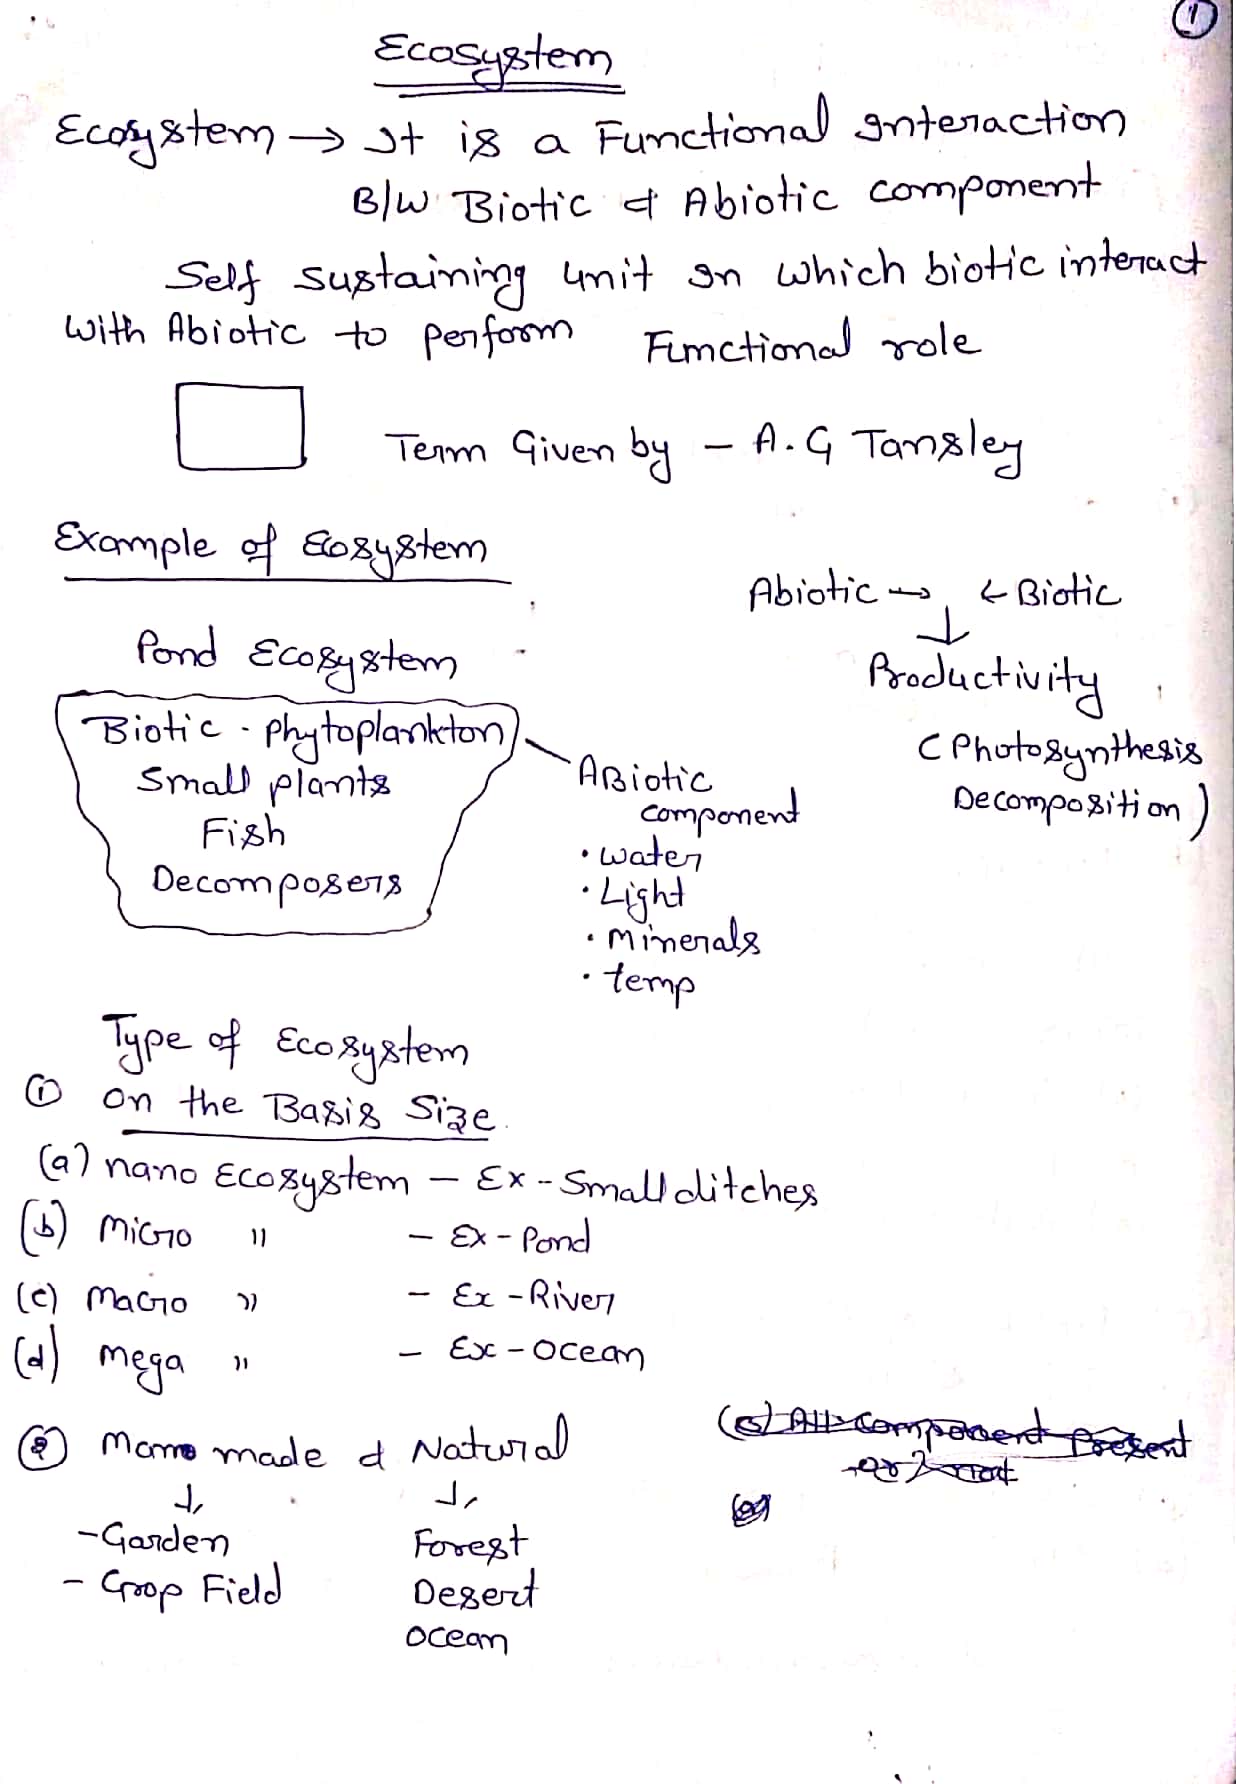 1
Ecosystem
Ecosystem → It is a Functional Interaction
B/W Biotic & Abiotic component
Self sustaining unit In which biotic interact
with Abiotic to perform Functional role
Term Given by - A.G Tansley
Example of Ecosystem
Abiotic → ← Biotic
↓
Productivity
(Photosynthesis
Decomposition)
Pond Ecosystem
Biotic - phytoplankton
Small plants
Fish
Decomposers
ABiotic
component
• water
• Light
• minerals
• temp
Type of Ecosystem
① on the Basis Size
(a) nano Ecosystem - Ex - Small ditches
(b) Micro " - Ex - Pond
(c) Macro " - Ex - River
(d) Mega " - Ex - Ocean
② Man made & Natural
↓ ↓
- Garden
- Crop Field
Forest
Desert
Ocean
All component Present
or not